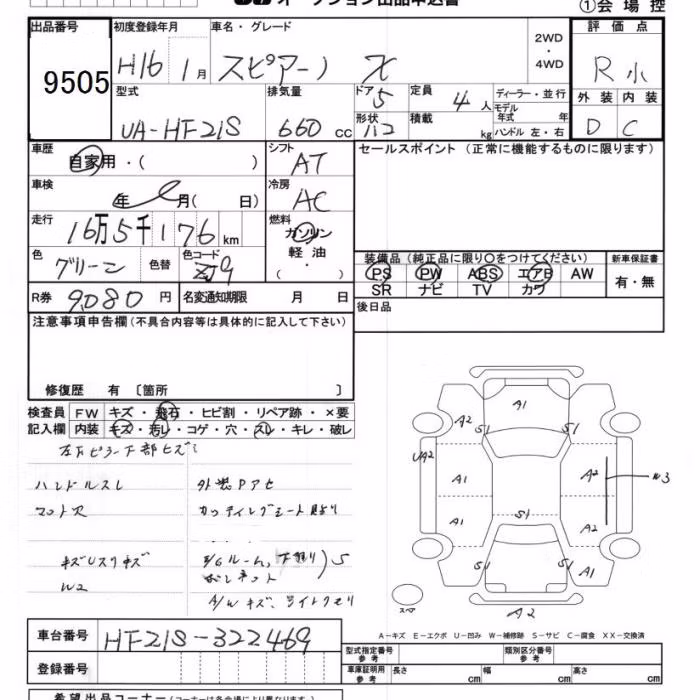 オークション出品申込書
①会場控
出品番号 9505
初度登録年月 H16 1月
車名・グレード スピアーノ X
2WD・4WD
評価点 R小
型式 UA-HF21S
排気量 660cc
ドア 5
形状 ハコ
定員 4人
積載 kg
ディーラー・並行
モデル年式 年
ハンドル 左・右
外装 D
内装 C
車歴 自家用・( )
シフト AT
セールスポイント(正常に機能するものに限ります)
車検 年 月( 日)
冷房 AC
走行 16万5千176km
燃料 ガソリン 軽油・( )
色 グリーン 色替
色コード
装備品(純正品に限り○をつけてください)
PS PW ABS エアB AW
SR ナビ TV カワ
新車保証書 有・無
R券 9080円
名変通知期限 月 日
後日品
注意事項申告欄(不具合内容等は具体的に記入して下さい)
修復歴 有〔箇所 〕
検査員記入欄
FW キズ・飛石・ヒビ割・リペア跡・×要
内装 キズ・汚レ・コゲ・穴・スレ・キレ・破レ
ハンドルスレ
外装Pアセ
マット欠
W2
A/Wキズ、ライトクモリ
A1
A2 S1 S1
UA2 A1 A2 W3
A1 S1 A2
A1
スペア
A2
A-キズ E-エクボ U-凹み W-補修跡 S-サビ C-腐食 XX-交換済
車台番号 HF21S-322469
登録番号
型式指定番号 参考
類別区分番号 参考
車庫証明用 参考 長さ cm 幅 cm 高さ cm
希望出品コーナー(コーナーは各会場により異なります)